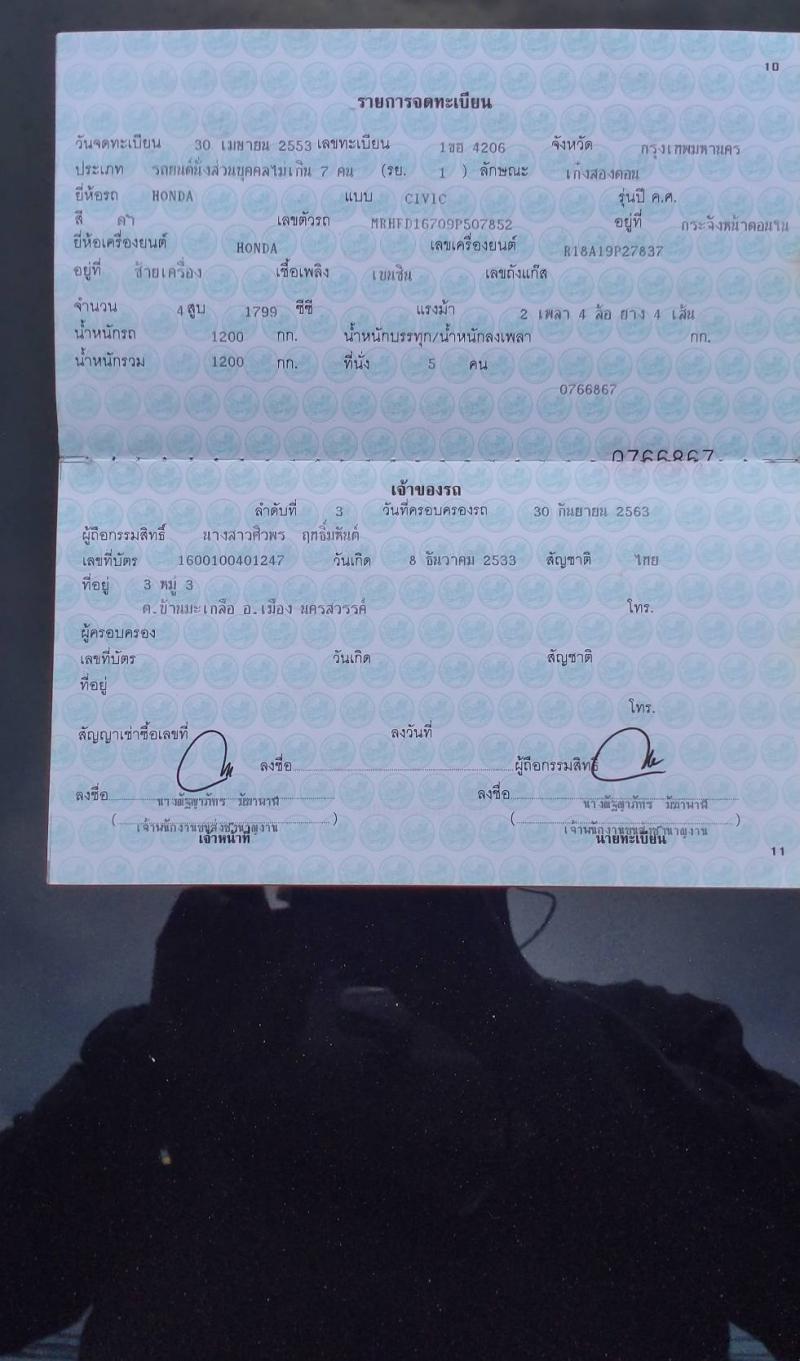 10
รายการจดทะเบียน
วันจดทะเบียน 30 เมษายน 2553 เลขทะเบียน 1ขอ 4206 จังหวัด กรุงเทพมหานคร
ประเภท รถยนต์นั่งส่วนบุคคลไม่เกิน 7 คน (รย. 1 ) ลักษณะ เก๋งสองตอน
ยี่ห้อรถ HONDA แบบ CIVIC รุ่นปี ค.ศ.
สี ดำ เลขตัวรถ MRHFD16709P507852 อยู่ที่ กระจังหน้าตอนใน
ยี่ห้อเครื่องยนต์ HONDA เลขเครื่องยนต์ R18A19P27837
อยู่ที่ ซ้ายเครื่อง เชื้อเพลิง เบนซิน เลขถังแก๊ส
จำนวน 4 สูบ 1799 ซีซี แรงม้า 2 เพลา 4 ล้อ ยาง 4 เส้น
น้ำหนักรถ 1200 กก. น้ำหนักบรรทุก/น้ำหนักลงเพลา กก.
น้ำหนักรวม 1200 กก. ที่นั่ง 5 คน
0766867
0766867
เจ้าของรถ
ลำดับที่ 3 วันที่ครอบครองรถ 30 กันยายน 2563
ผู้ถือกรรมสิทธิ์ นางสาวศิวพร
เลขที่บัตร 1600100401247 วันเกิด 8 ธันวาคม 2533 สัญชาติ ไทย
ที่อยู่ 3 หมู่ 3
ต.บ้านมะเกลือ อ.เมือง นครสวรรค์ โทร.
ผู้ครอบครอง
เลขที่บัตร วันเกิด สัญชาติ
ที่อยู่
โทร.
สัญญาเช่าซื้อเลขที่ ลงวันที่
ลงชื่อ ผู้ถือกรรมสิทธิ์
ลงชื่อ ลงชื่อ
( ) ( )
เจ้าพนักงานขนส่งชำนาญงาน เจ้าพนักงานขนส่งชำนาญงาน
เจ้าหน้าที่ นายทะเบียน
11